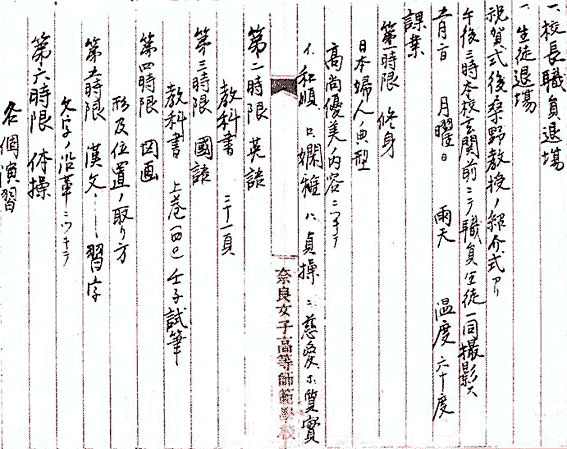 一、校長職員退場
一、生徒退場
祝賀式後桑野教授ノ紹介式アリ
午後三時本校玄関前ニテ職員生徒一同撮影ス
月曜日 雨天 温度六十度
課業
第一時限 修身
日本婦人ノ典型
高尚優美ノ内容ニツキテ
イ、和順 ロ、嫻雅 ハ、貞操 ニ、慈愛 ホ、質實
奈良女子高等師範學校
第二時限 英語
教科書 三十一頁
第三時限 國語
教科書 上巻(四四) 壬子試筆
第四時限 図画
形及位置ノ取リ方
第五時限 漢文……習字
文字ノ沿革ニツキテ
第六時限 体操
各個演習